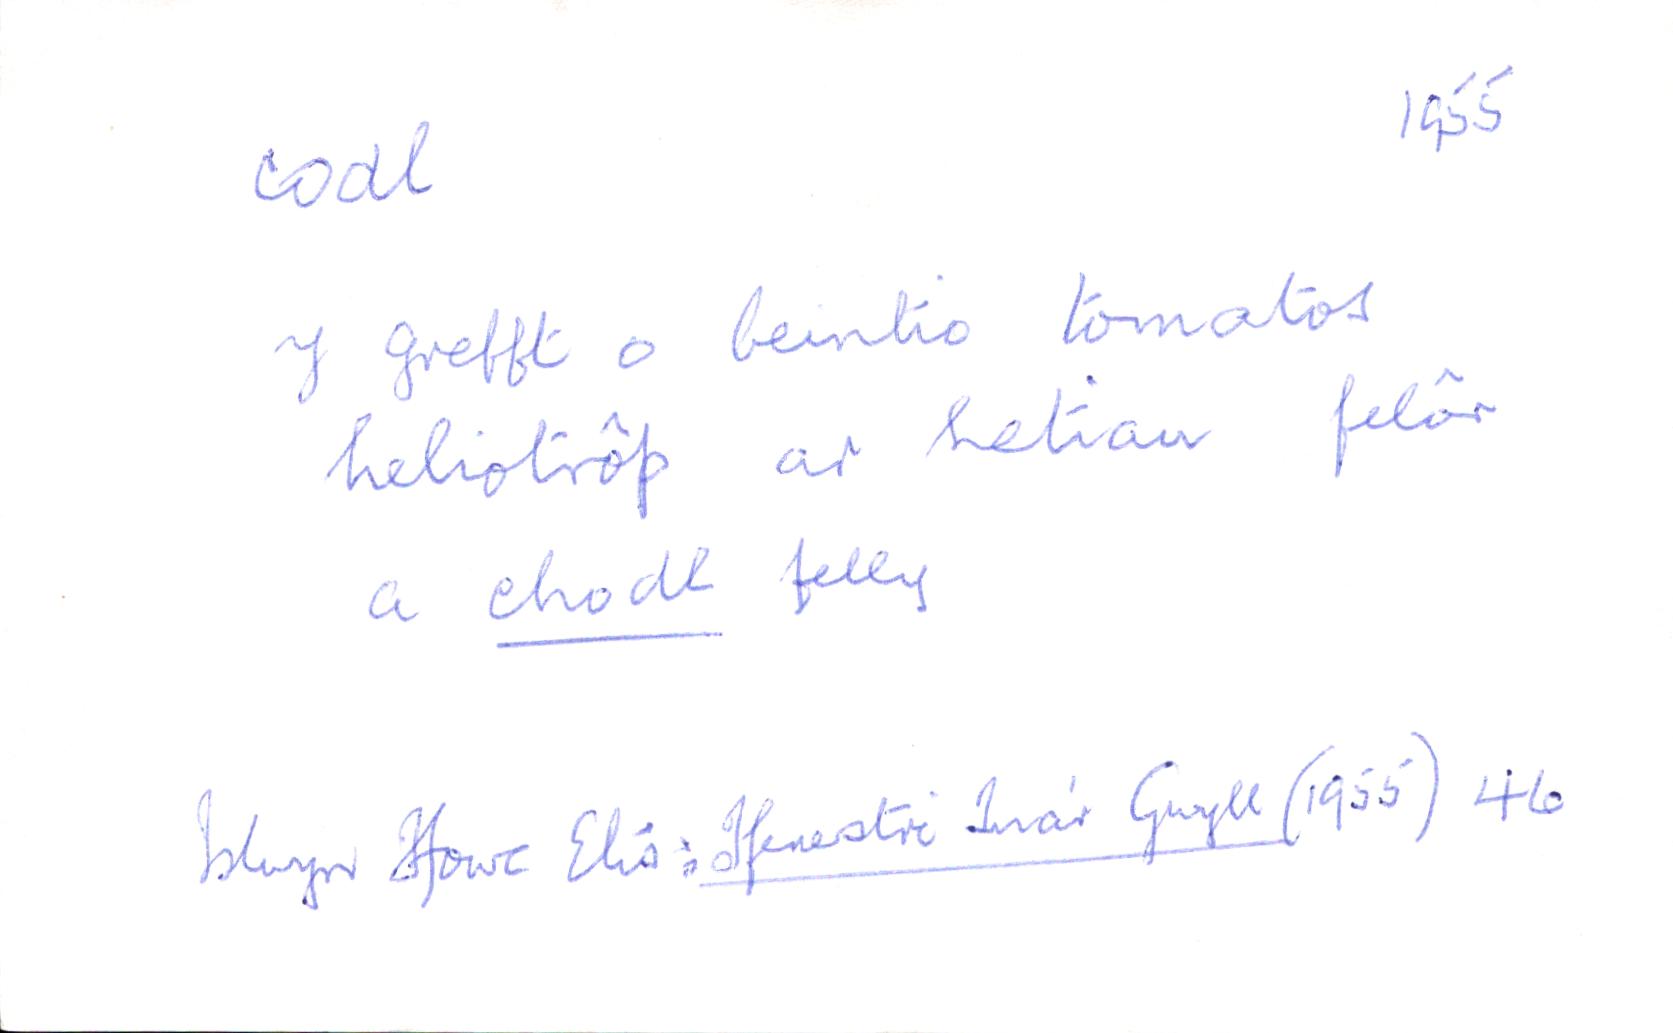 1955
codl
y grefft o beintio tomatos
heliotrôp ar hetiau felôr
a chodl felly
Islwyn Ffowc Elis: Ffenestri Tua'r Gwyll (1955) 46